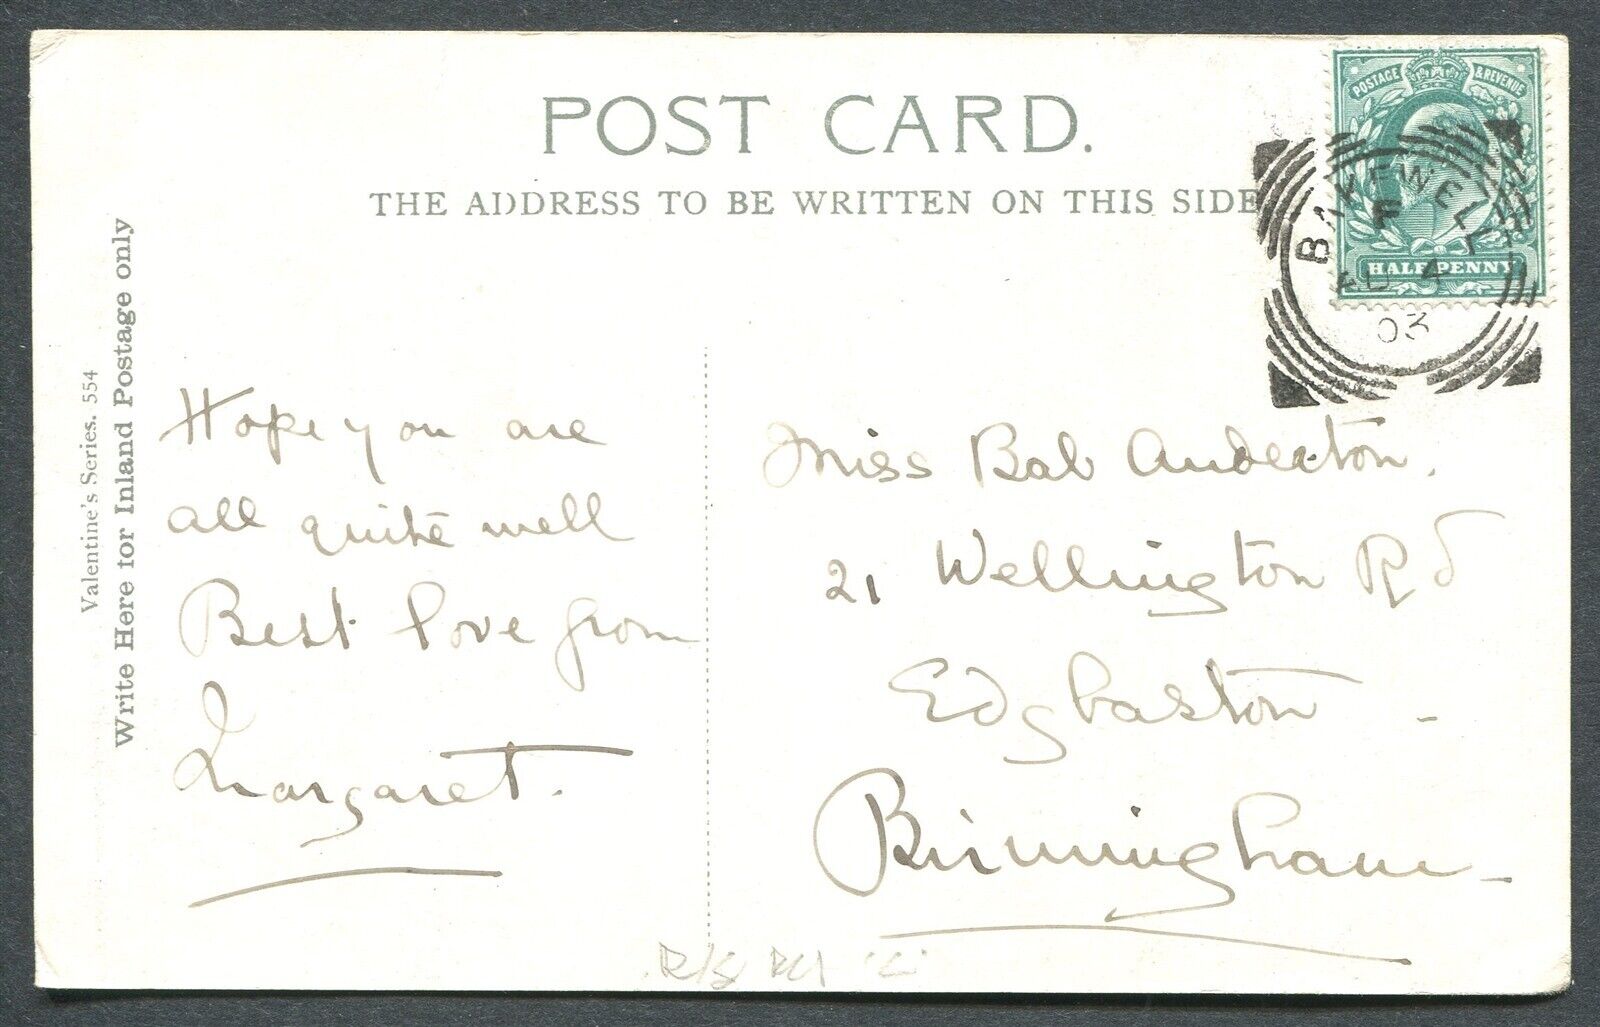 POST CARD.
THE ADDRESS TO BE WRITTEN ON THIS SIDE
Valentine's Series. 554
Write Here for Inland Postage only
POSTAGE & REVENUE
HALFPENNY
BAKEWELL
F
AU 4
03
Hope you are
all quite well
Best love from
Margaret.
Miss Bab Anderton.
21 Wellington Rd
Edgbaston -
Birmingham -